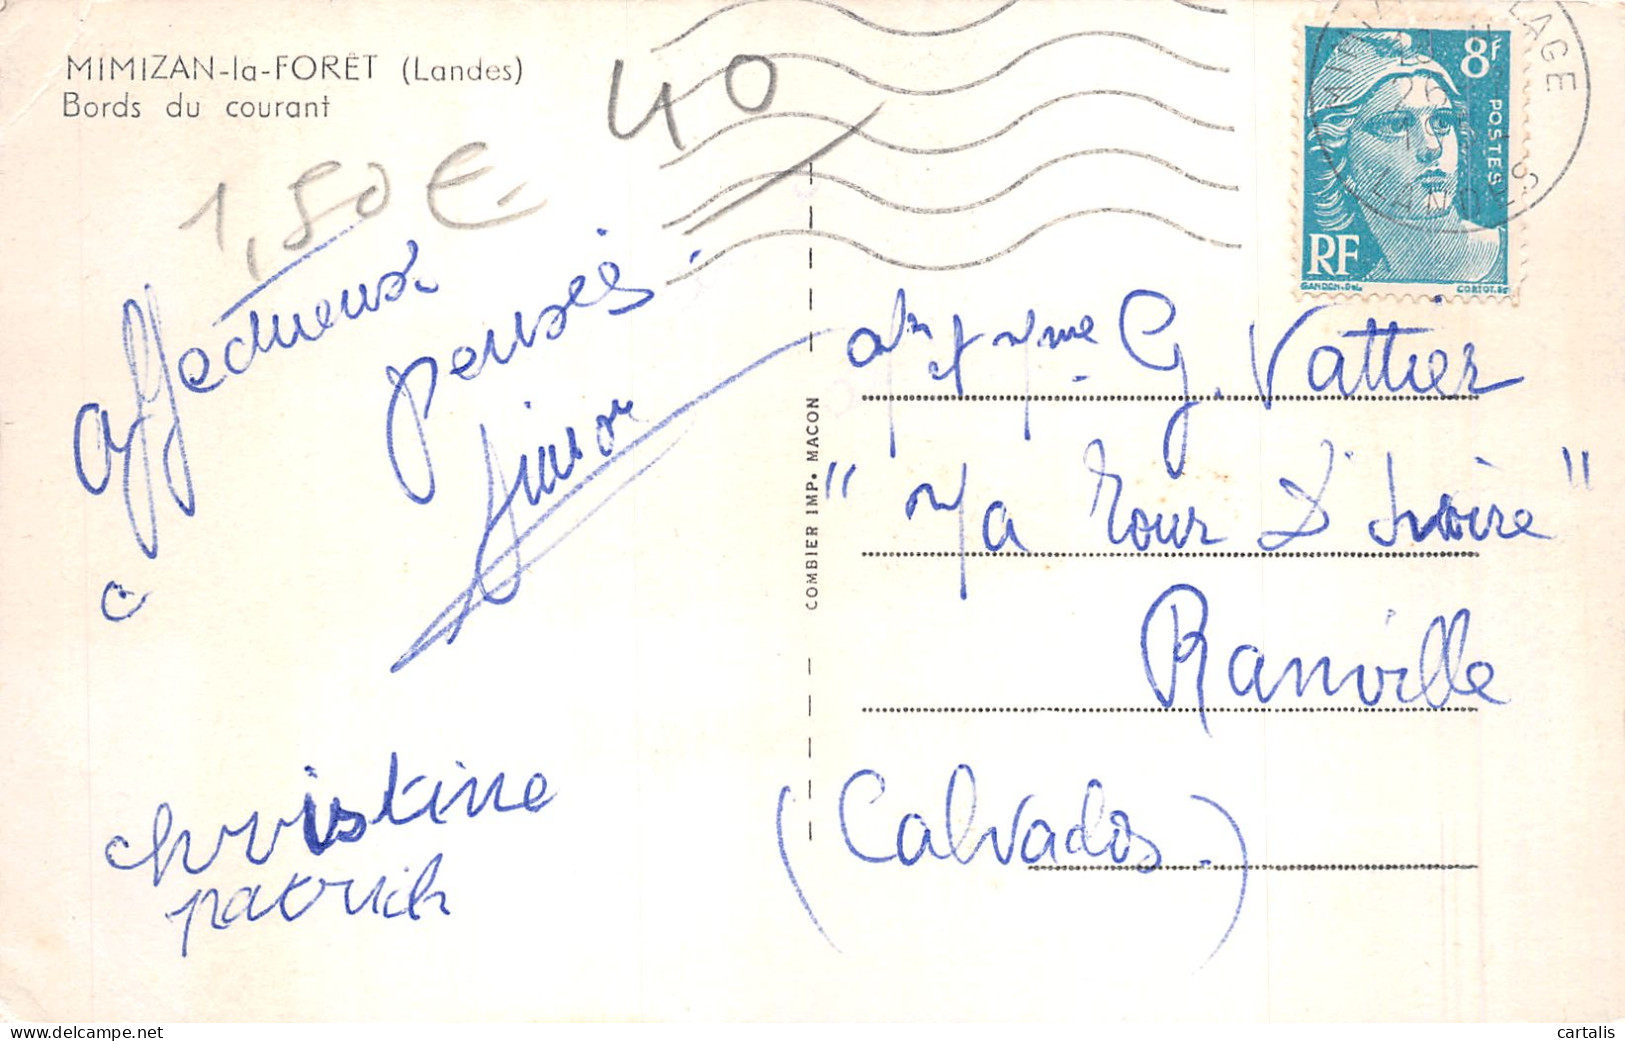 MIMIZAN-la-FORÊT (Landes)
Bords du courant
40
1,50 €
Affectueuses
pensées.
christine
patrick
COMBIER IMP. MACON
8F
POSTES
RF
GANDON-Del.
CORTOT.Sc
PLAGE
LANDES
G. Vattier
"Ma Tour d'Ivoire"
Ranville
(Calvados.)
cartalis
www.delcampe.net